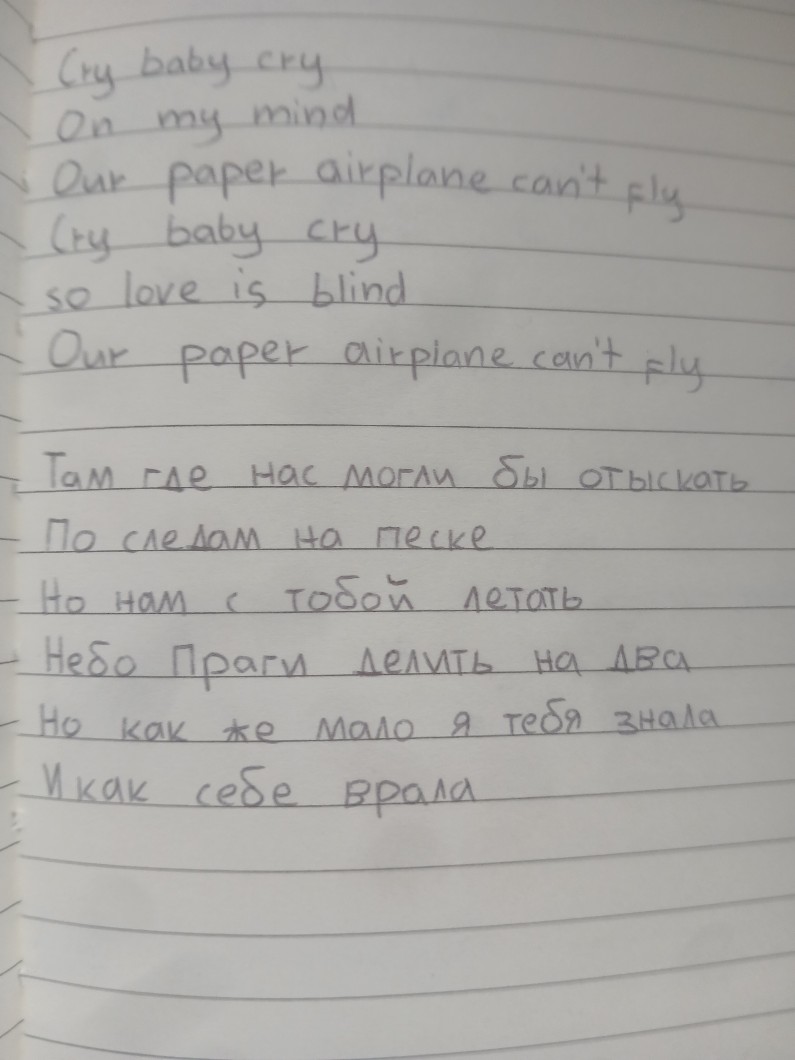 Cry baby cry
On my mind
Our paper airplane can't fly
Cry baby cry
so love is blind
Our paper airplane can't fly
Там где нас могли бы отыскать
По следам на песке
Но нам с тобой летать
Небо Праги делить на два
Но как же мало я тебя знала
И как себе врала